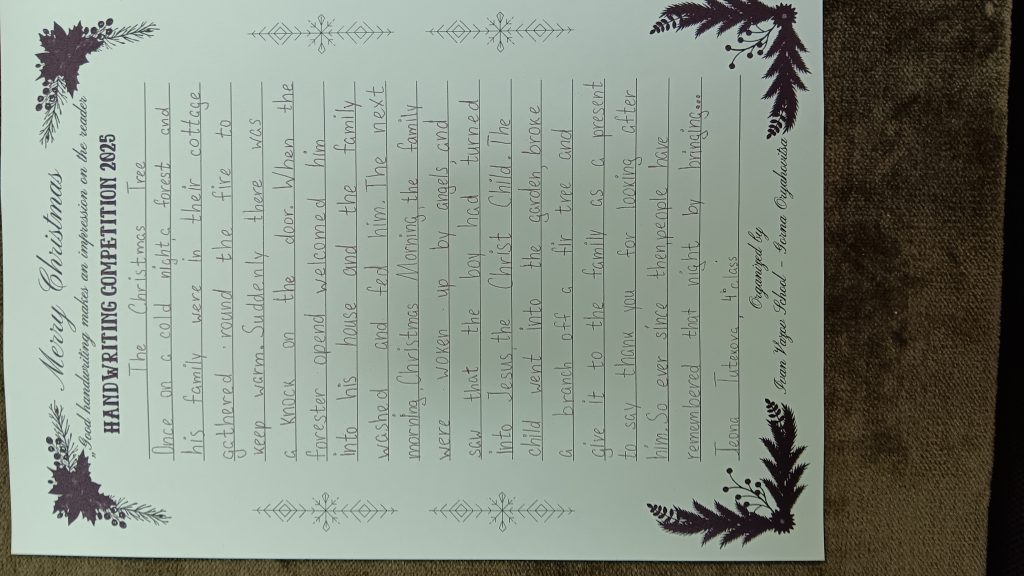 Merry Christmas
„Good handwriting makes an impression on the reader
HANDWRITING COMPETITION 2025
The Christmas Tree
Once on a cold night,a forest and
his family were in their cottage
gathered round the fire to
keep warm. Suddenly there was
a knock on the door. When the
forester opend welcomed him
into his house and the family
washed and fed him. The next
morning, Christmas Morning, the family
were woken up by angels and
saw that the boy had turned
into Jesus the Christ Child. The
child went into the garden, broke
a branch off a fir tree and
give it to the family as a present
to say thank you for looking after
him. So ever since thenpeople have
remembered that night by bringing...
Tutekova, 4 class
Organized by
Ivan Vazov School - Yoana Orzhovitsa